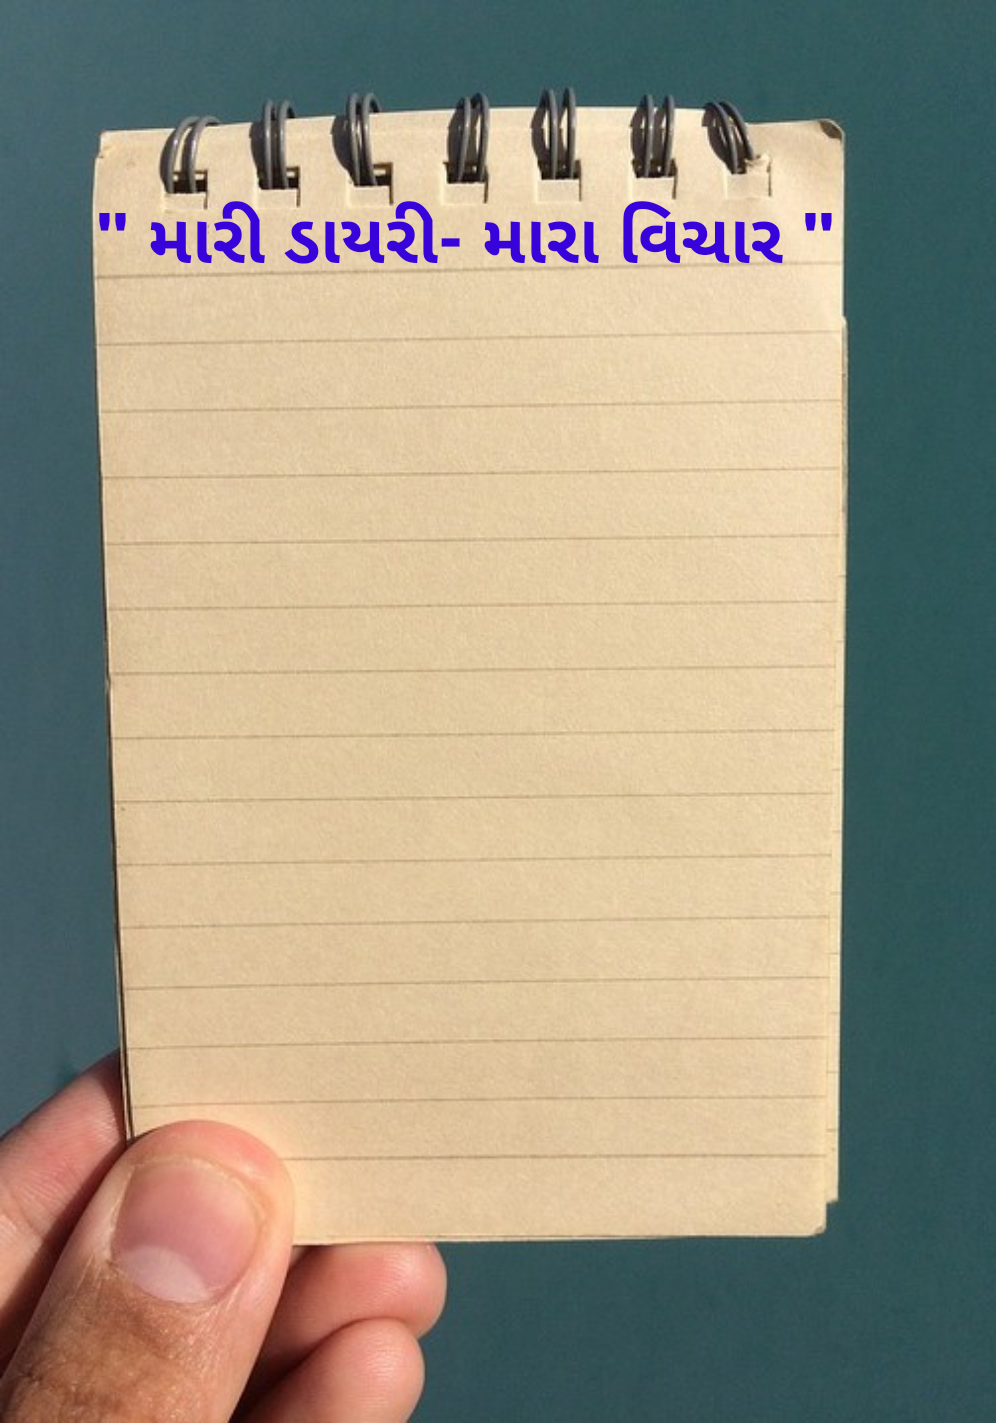 " મારી ડાયરી- મારા વિચાર "